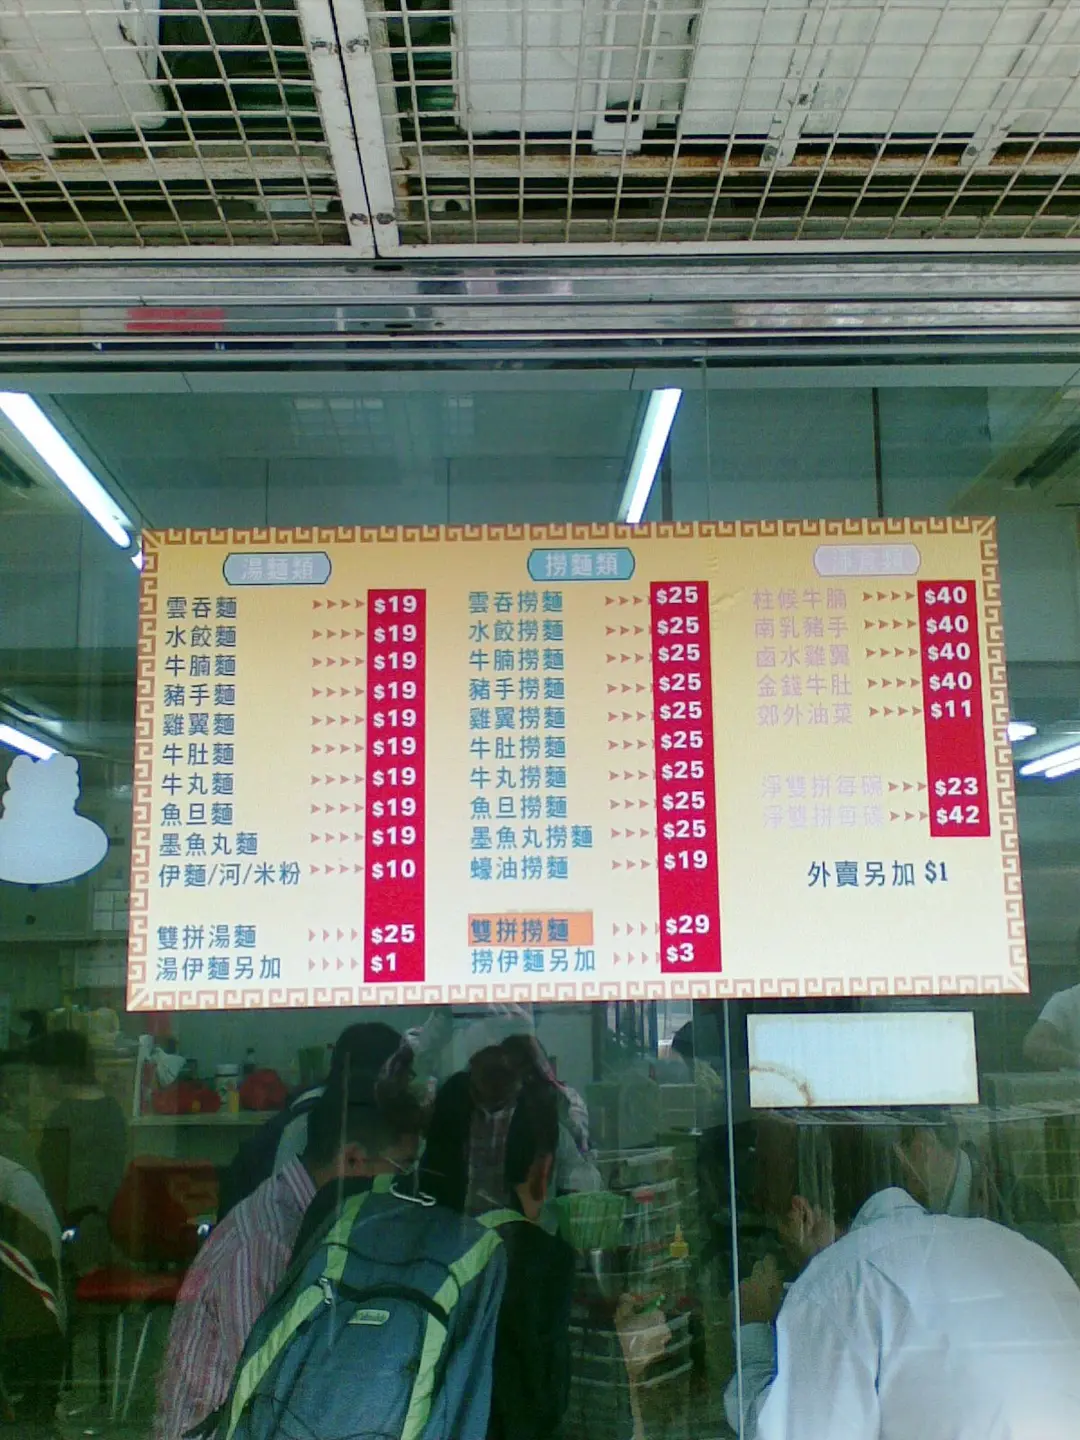 湯麵類
雲吞麵 $19
水餃麵 $19
牛腩麵 $19
豬手麵 $19
雞翼麵 $19
牛肚麵 $19
牛丸麵 $19
魚旦麵 $19
墨魚丸麵 $19
伊麵/河/米粉 $10
雙拼湯麵 $25
湯伊麵另加 $1
撈麵類
雲吞撈麵 $25
水餃撈麵 $25
牛腩撈麵 $25
豬手撈麵 $25
雞翼撈麵 $25
牛肚撈麵 $25
牛丸撈麵 $25
魚旦撈麵 $25
墨魚丸撈麵 $25
蠔油撈麵 $19
雙拼撈麵 $29
撈伊麵另加 $3
柱候牛腩 $40
南乳豬手 $40
鹵水雞翼 $40
金錢牛肚 $40
郊外油菜 $11
淨雙拼每碗 $23
淨雙拼每碟 $42
外賣另加 $1